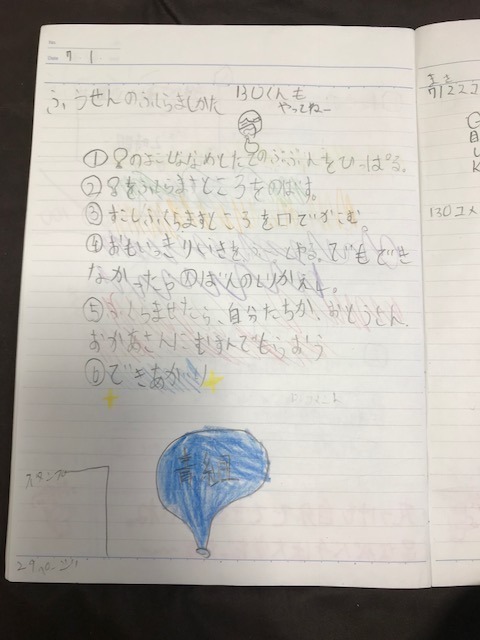 No.
Date 7 1
ふうせんのふくらましかた 130くんも
やってねー
①8のよこしななめしたてのぶぶんをひっぱる。
②8をふくらますところをのばす。
③すこしふくらますところを口でかこむ。
④おもいっきりいきをふーとやる。でもでき
なかったら①ばんのとりかえし。
⑤ふくらませたら、自分たちか、おとうさん、
おかあさんにむすんでもらおう
⑥できあがり
青組
スタンプ
29ページ
7122コ
130コメ